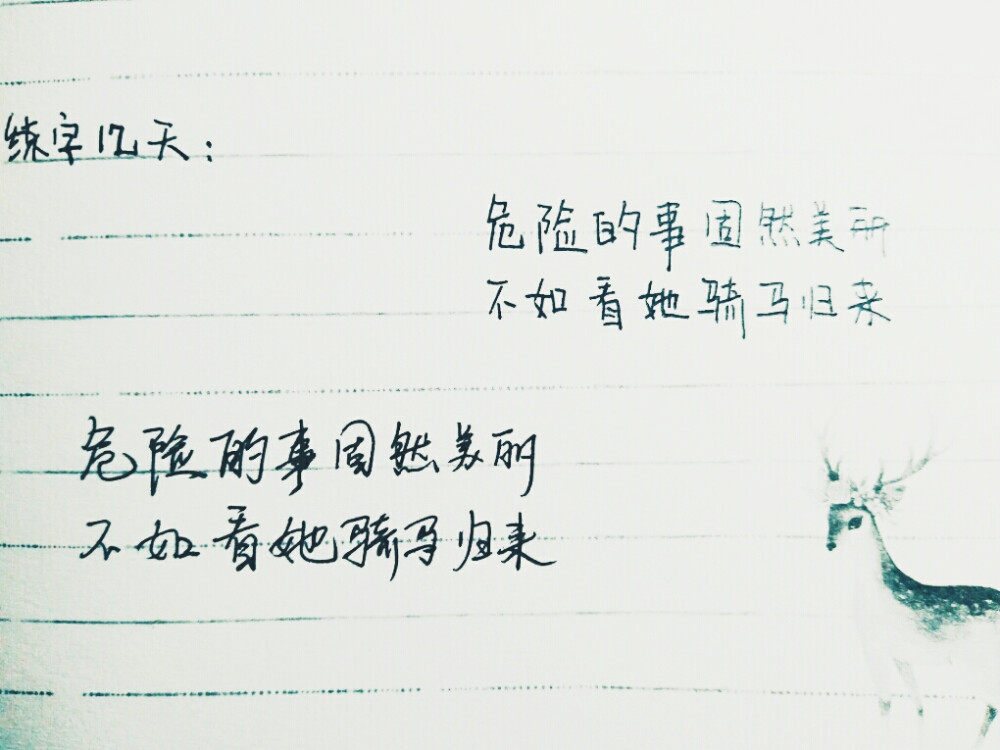 练字12天:
危险的事固然美丽
不如看她骑马归来
危险的事固然美丽
不如看她骑马归来